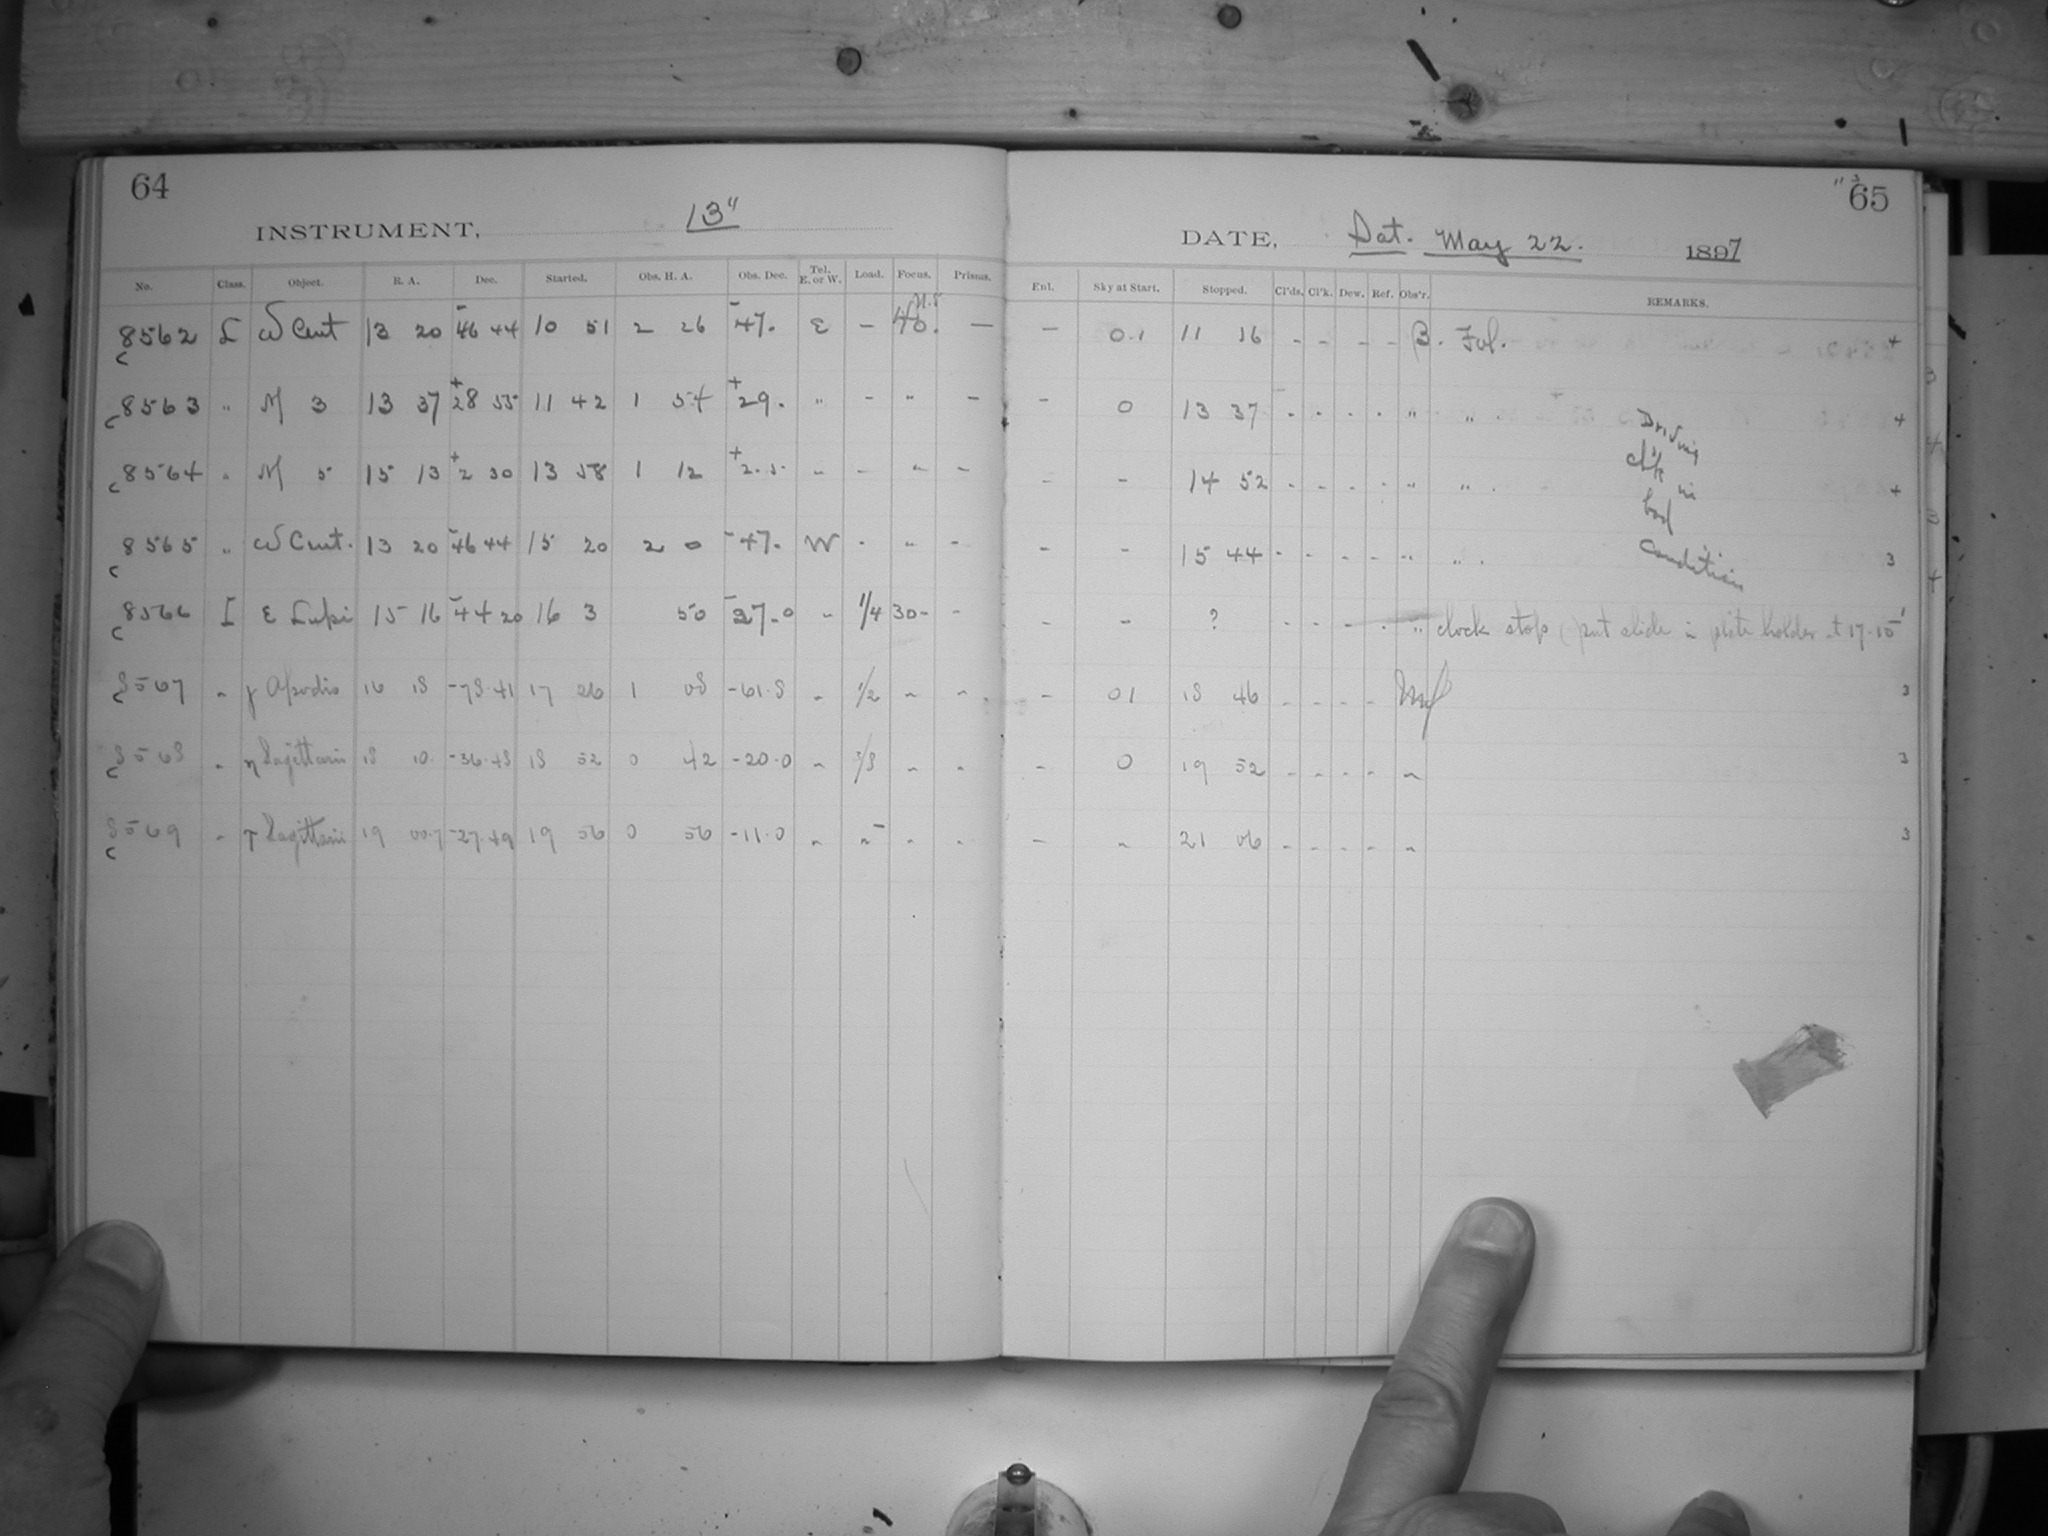 64
INSTRUMENT, 13"
No. Class. Object. R. A. Dec. Started. Obs. H. A. Obs. Dec. Tel. E. or W. Load. Focus. Prisms.
8562 L ω Cent 13 20 -46 44 10 51 2 26 -47. E - -
8563 " M 3 13 37 +28 55 11 42 1 54 +29. " - " -
8564 " M 5 15 13 +2 30 13 58 1 12 +2.5 " - " -
8565 " ω Cent. 13 20 -46 44 15 20 2 0 -47. W - " -
8566 I ε Lupi 15 16 -44 20 16 3 50 -37.0 " 1/4 30- -
8567 " γ Apodis 16 18 -78.41 17 26 1 08 -61.8 " 1/2 " "
8568 " η Sagittarii 18 10 -36.48 18 52 0 42 -20.0 " " "
8569 " τ Sagittarii 19 00.7 -27.49 19 56 0 56 -11.0 " " " "
65
DATE, Sat. May 22. 1897
Enl. Sky at Start. Stopped. Cl'ds. Cl'k. Dew. Ref. Obs'r. REMARKS.
- 0.1 11 16 - - - - B. Fol. 4
- 0 13 37 - - - - " " 4
- - 14 52 - - - - " " 4
- - 15 44 - - - - " " 3
Driving
cl'k in
bad
condition
- - ? - - - - " clock stop put slide in plate holder at 17.10
- 01 18 46 - - - - 3
- 0 19 52 - - - - " 3
- " 21 06 - - - - " 3